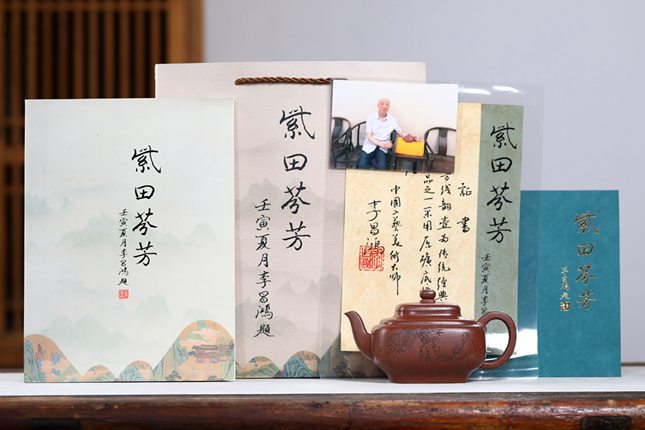 紫田芬芳
壬寅夏月李昌鸿题
紫田芬芳
壬寅夏月李昌鸿题
证书
方线韵壶为传统经典
品之一采用原矿底
中国工艺美术大师
李昌鸿
紫田芬芳
壬寅夏月李昌鸿
紫田芬芳
李昌鸿题